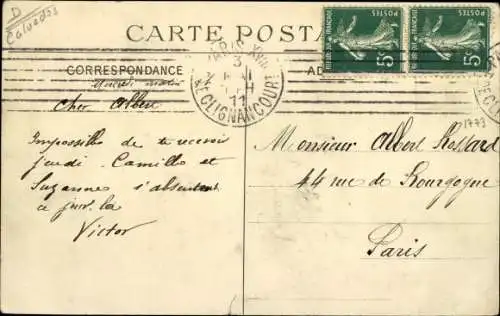 D
Calvados
CARTE POSTA
CORRESPONDANCE
AD
PARIS XVIII
3
11
R. CLIGNANCOURT
POSTES
5c
POSTES
5c
1773
Mercredi matin
Cher Albert
Impossible de te recevoir
jeudi. Camille et
Suzanne s'absentent
ce jour là
Victor
Monsieur Albert Rossard
44 rue de Bourgogne
Paris